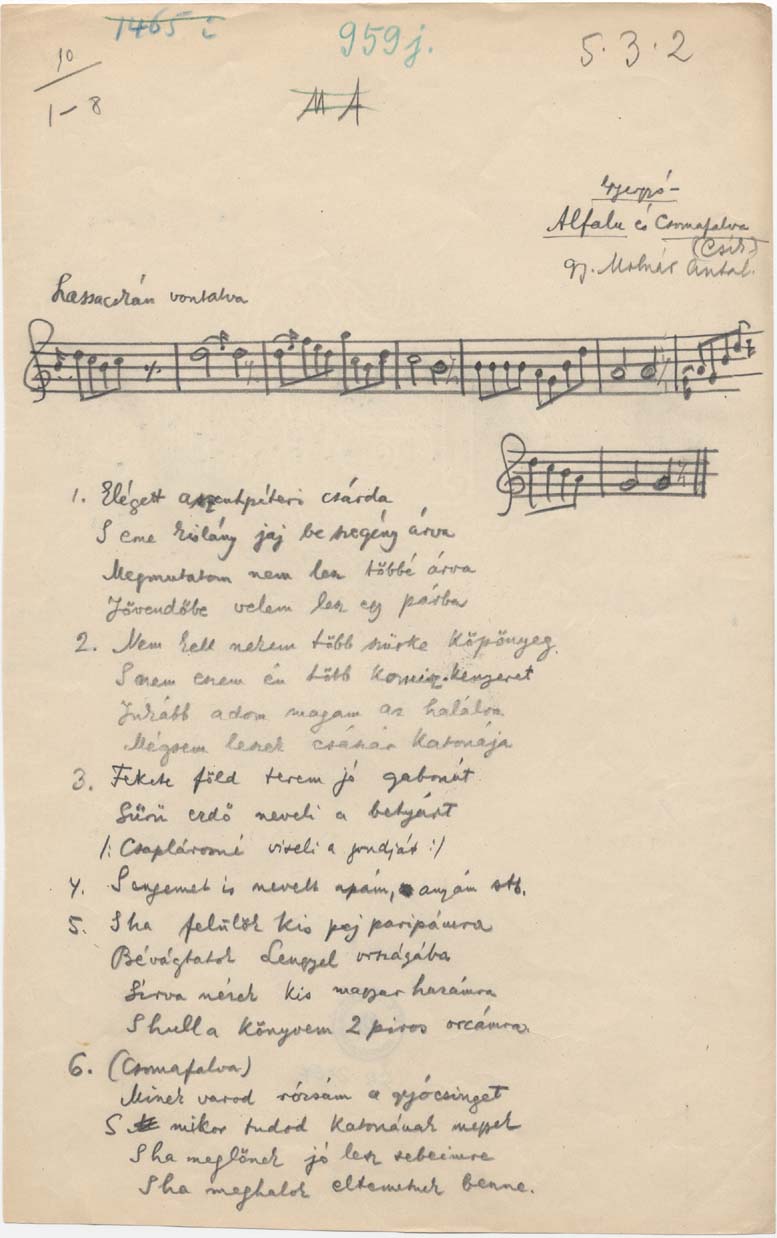 1465 i
959 j.
5.3.2
10
1–8
MA
Gyergyó-
Alfalu és Csomafalva
(Csík)
gy. Molnár Antal.
Lassacskán vontatva
1. Elégett a szentpéteri csárda
S eme kislány jaj be szegény árva
Megmutatom nem lesz többé árva
Jövendőbe velem lesz egy párba
2. Nem kell nekem több szürke köpönyeg
S nem eszem én több komisz-kenyeret
Inkább adom magam az halálra
Mégsem leszek császár katonája
3. Fekete föld terem jó gabonát
Sürü erdő neveli a betyárt
/: Csaplárosné viseli a gondját :/
4. S engemet is nevelt apám, anyám stb.
5. S ha felülök kis pej paripámra
Bévágtatok Lengyel országába
Sírva nézek kis magyar hazámra
S hull a könyvem 2 piros orcámra.
6. (Csomafalva)
Minek varod rózsám a gyócsinget
S mikor tudod katonának megyek
S ha meglőnek jó lesz sebeimre
S ha meghalok eltemetnek benne.